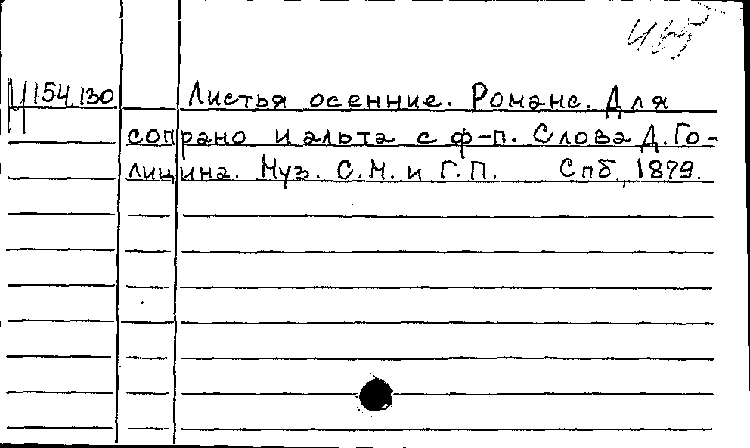 М154.130 Листья осенние. Романс. Для
сопрано и альта с ф-п. Слова Д. Го-
лицина. Муз. С.М. и Г.П. Спб., 1879.